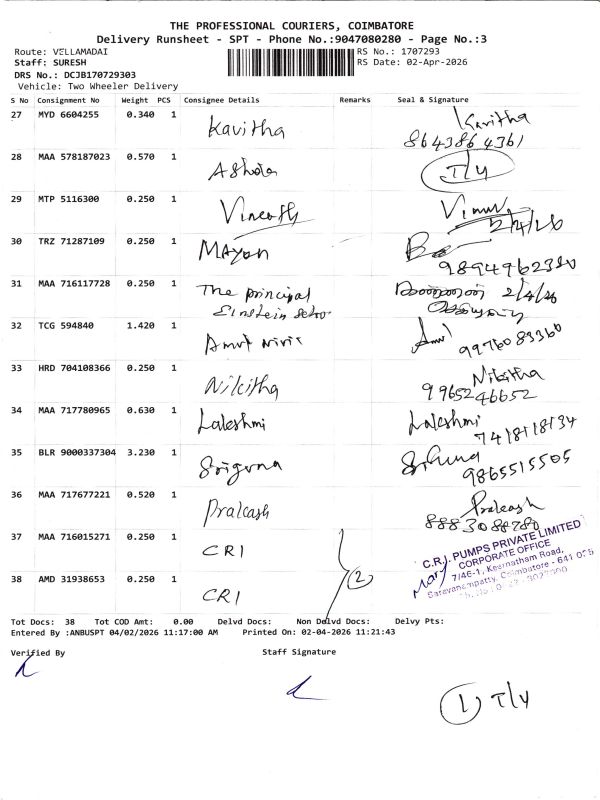 THE PROFESSIONAL COURIERS, COIMBATORE
Delivery Runsheet - SPT - Phone No.:9047080280 - Page No.:3
Route: VELLAMADAI RS No.: 1707293
Staff: SURESH RS Date: 02-Apr-2026
DRS No.: DCJB170729303
Vehicle: Two Wheeler Delivery
S No Consignment No Weight PCS Consignee Details Remarks Seal & Signature
27 MYD 6604255 0.340 1 Kavitha Kavitha
8643864361
28 MAA 578187023 0.570 1 Ashok T/4
29 MTP 5116300 0.250 1 2/4/26
30 TRZ 71287109 0.250 1 Mayan
9894962320
31 MAA 716117728 0.250 1 The principal 2/4/26
Einstein
32 TCG 594840 1.420 1 Amut
9976083360
33 HRD 704108366 0.250 1 Nikitha Nikitha
9965246652
34 MAA 717780965 0.630 1 Lakshmi Lakshmi
7418118134
35 BLR 9000337304 3.230 1 Sriguna Sriguna
9865515505
36 MAA 717677221 0.520 1 Prakash Prakash
8883088780
37 MAA 716015271 0.250 1 CRI
C.R.I. PUMPS PRIVATE LIMITED
CORPORATE OFFICE
7/46-1, Keernatham Road,
Saravanampatty, Coimbatore - 641 035
38 AMD 31938653 0.250 1 CRI 2
Tot Docs: 38 Tot COD Amt: 0.00 Delvd Docs: Non Delvd Docs: Delvy Pts:
Entered By :ANBUSPT 04/02/2026 11:17:00 AM Printed On: 02-04-2026 11:21:43
Verified By Staff Signature
1 T/4